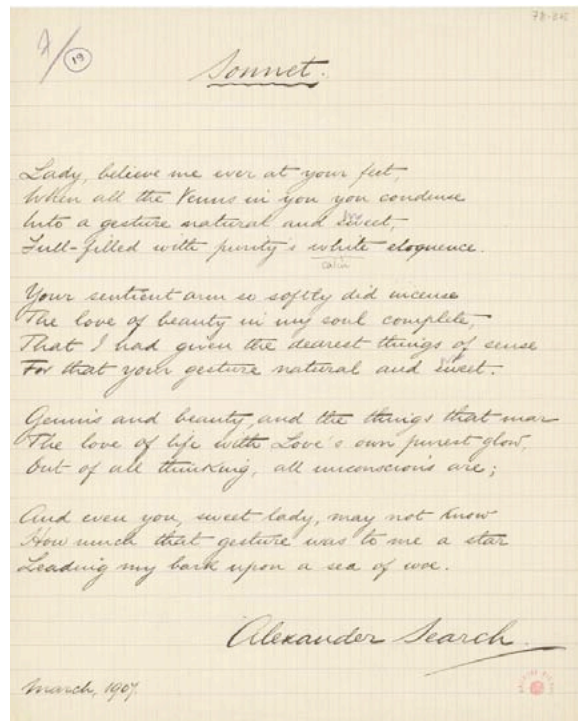 19
Sonnet.
Lady, believe me ever at your feet,
When all the Venus in you you condense
Into a gesture natural and sweet,
Full-filled with purity's white eloquence.
calm
Your sentient arm so softly did incense
The love of beauty in my soul complete,
That I had given the dearest things of sense
For that your gesture natural and sweet.
Genius and beauty, and the things that mar
The love of life with Love's own purest glow,
Out of all thinking, all unconscious are;
And even you, sweet lady, may not know
How much that gesture was to me a star
Leading my bark upon a sea of woe.
Alexander Search.
March, 1907.